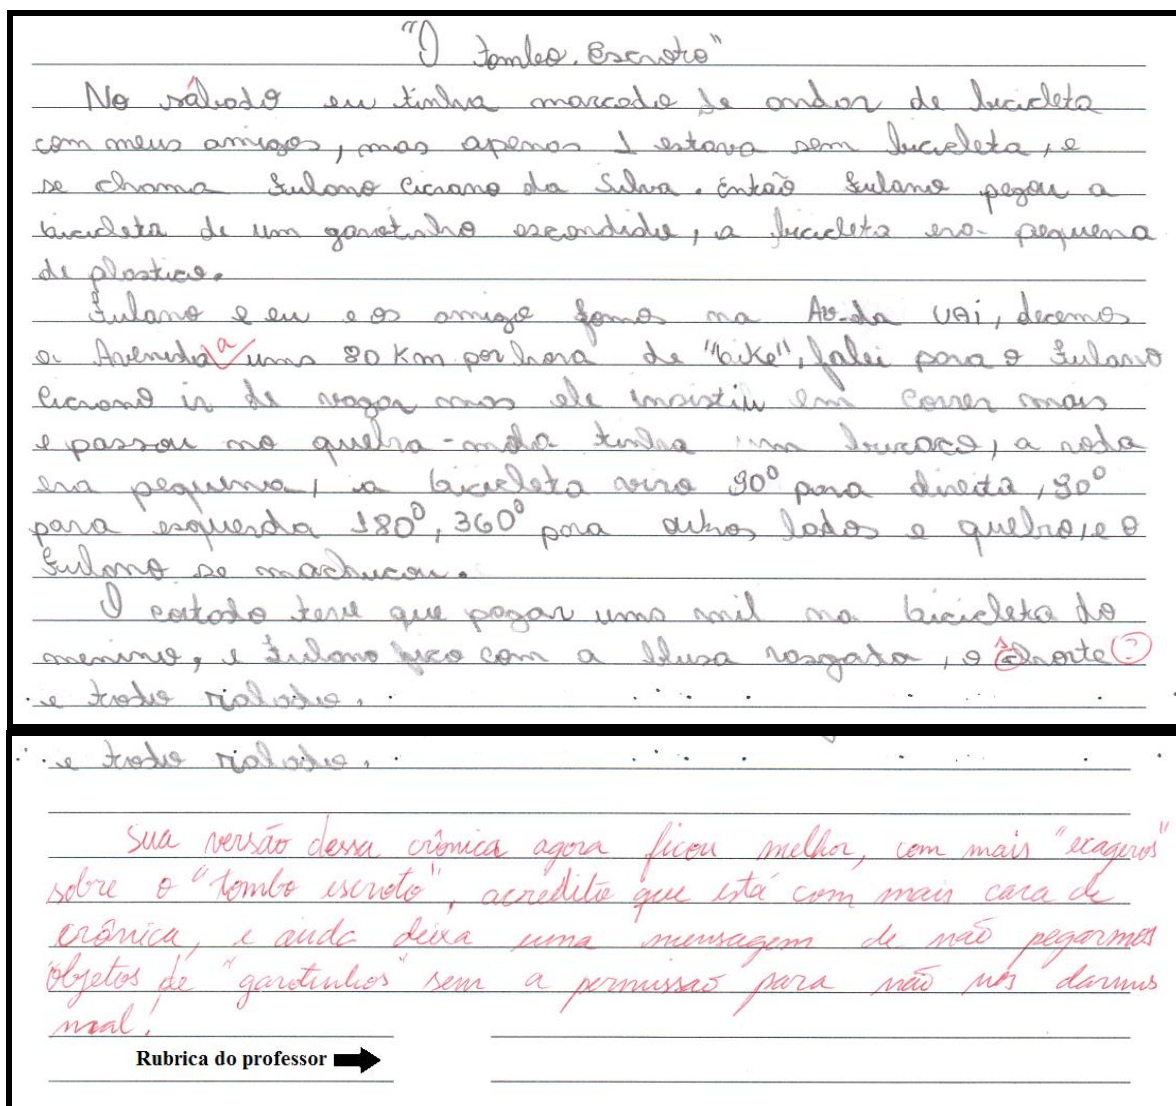 "O tombo Escroto"
No sábado eu tinha marcado de andar de bicicleta
com meus amigos, mas apenas 1 estava sem bicicleta, e
se chama Fulano Cicrano da Silva. Então Fulano pegou a
bicicleta de um garotinho escondido, a bicicleta era pequena
de plastico.
Fulano e eu e os amigo fomos na Av. da UAI, decemos
a Avenida a uma 80 Km por hora de "bike", falei para o Fulano
Cicrano ir de vagar mas ele insistiu em correr mais
e passou no quebra-mola tinha um buraco, a roda
era pequena, a bicicleta viro 90° para direita, 90°
para esquerda 180°, 360° para outros lados e quebro, e o
Fulano se machucou.
O coitado teve que pagar uma mil na bicicleta do
menino, e Fulano fico com a blusa rasgata, o shorte ?
e todo rialado.
e todo rialado.
Sua versão dessa crônica agora ficou melhor, com mais "exageros"
sobre o "tombo escroto", acredito que está com mais cara de
crônica, e ainda deixa uma mensagem de não pegarmos
objetos de "garotinhos" sem a permissão para não nos darmos
mal!
Rubrica do professor